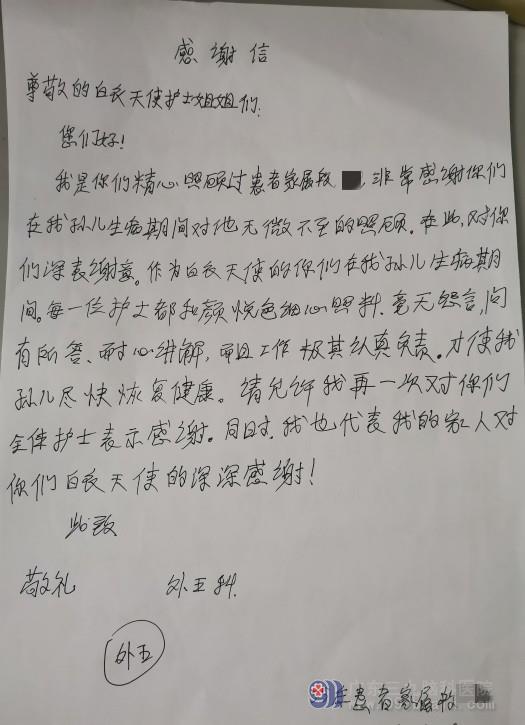 感谢信
尊敬的白衣天使护士姐姐们:
您们好!
我是你们精心照顾过患者家属段 非常感谢你们
在我孙儿生病期间对他无微不至的照顾。在此,对你
们深表谢意。作为白衣天使的你们在我孙儿生病期
间。每一位护士都和颜悦色细心照料、毫无怨言,问
有所答、耐心讲解,而且工作极其认真负责。才使我
孙儿尽快恢复健康。请允许我再一次对你们
全体护士表示感谢。同时,我也代表我的家人对
你们白衣天使的深深感谢!
此致
敬礼 外五科.
外五
患者家属段
广东三九脑科医院